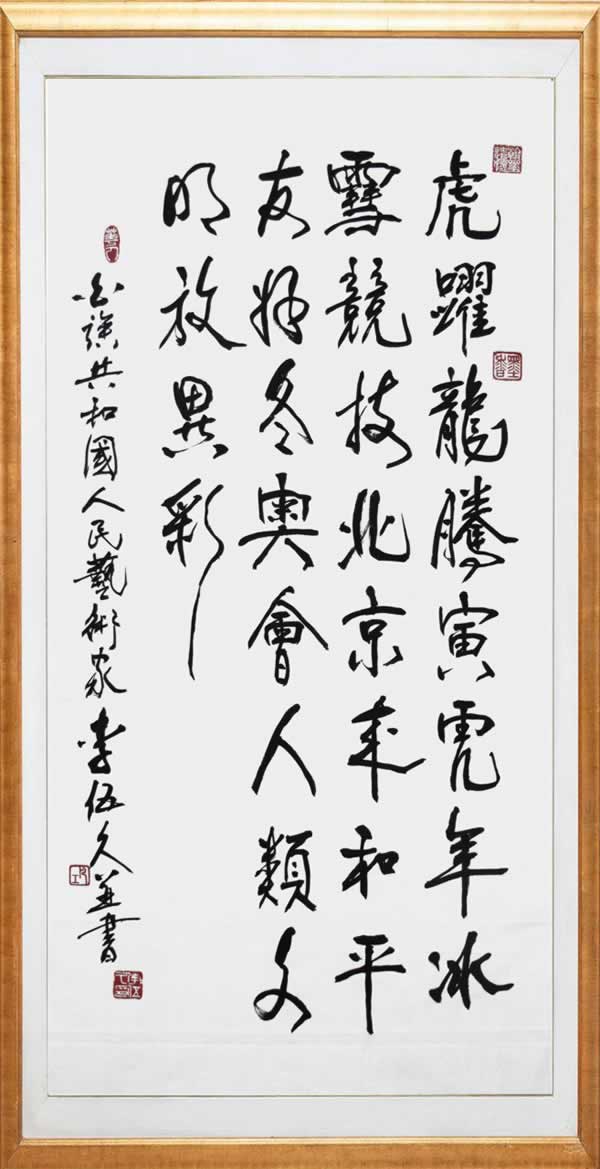 虎躍龍騰寅虎年冰
雪競技北京來和平
友好冬奧會人類文
明放異彩
族共和國人民藝術家李伍久並書
墨香